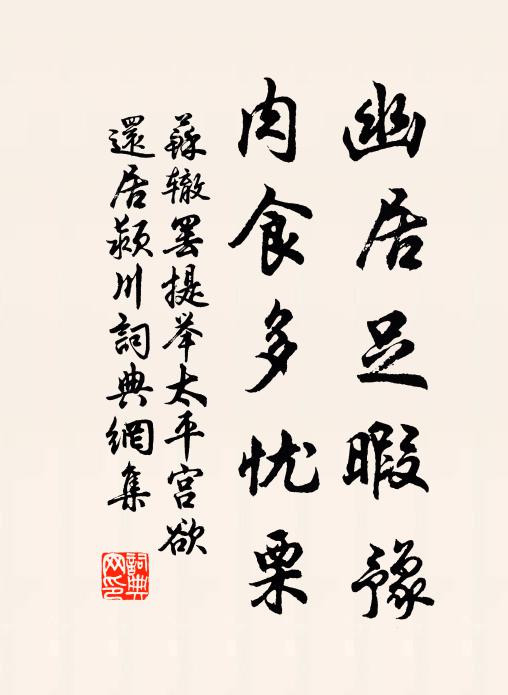 幽居足暇豫
肉食多忧栗
蘇辙罢提举太平宫欲
還居颍川詞典網集
詞典网印